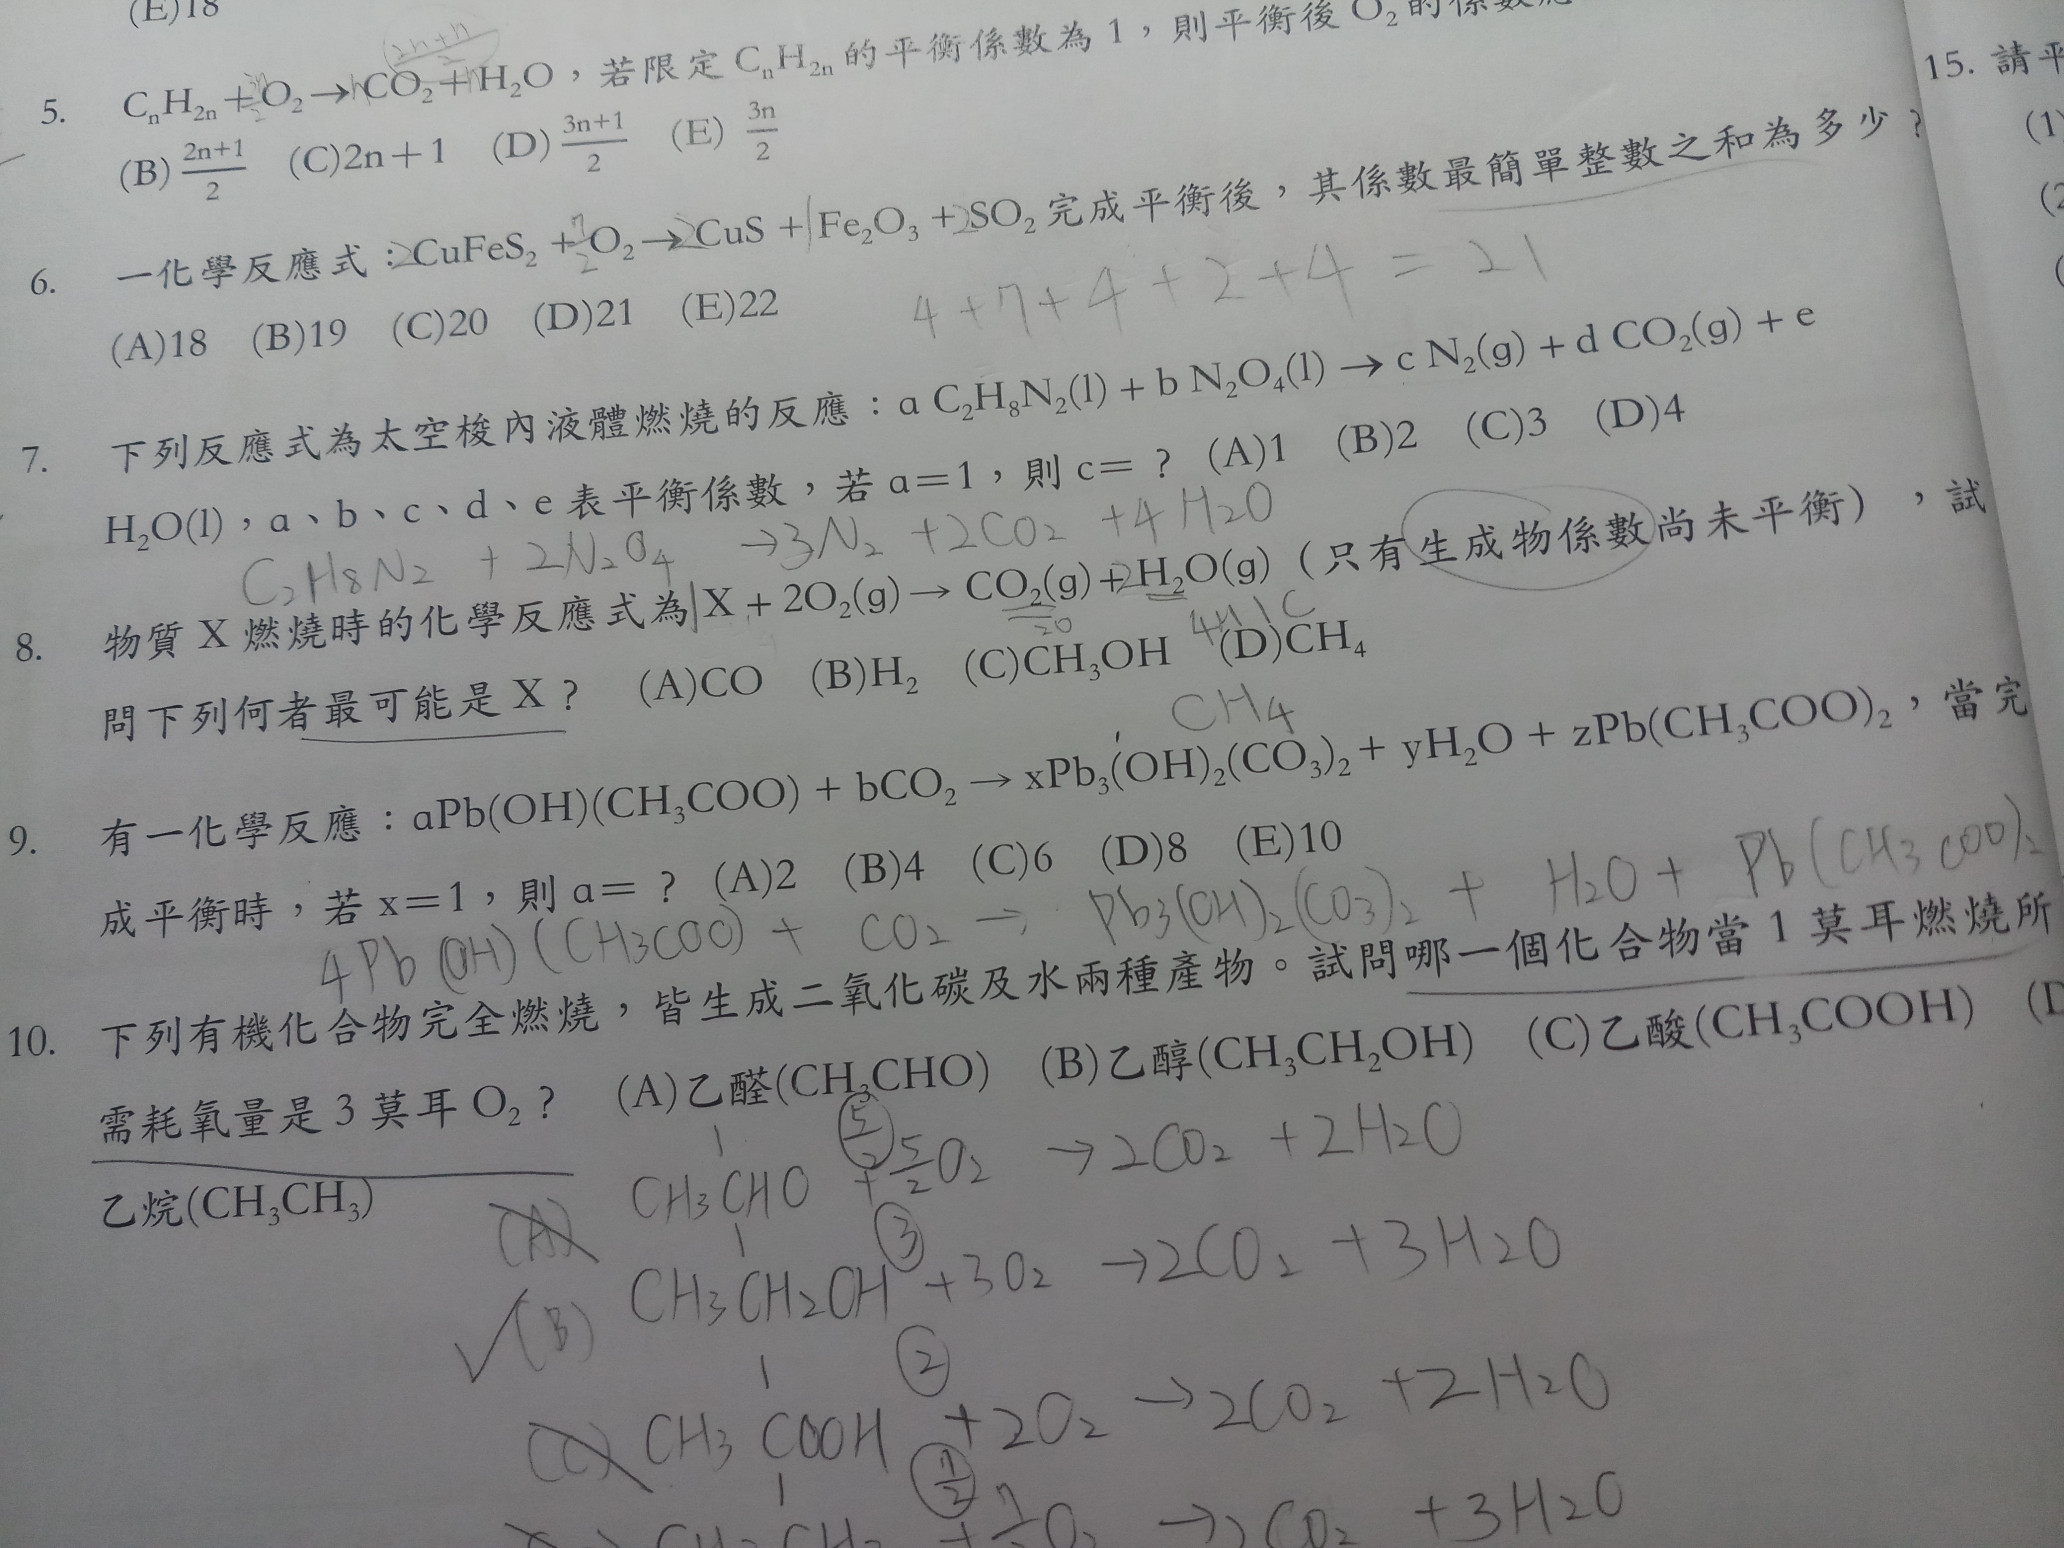 (E)18
5. CₙH₂ₙ + 3n/2 O₂ → nCO₂ + nH₂O，若限定 CₙH₂ₙ 的平衡係數為 1，則平衡後 O₂ 的係數應
(B) 2n+1/2 (C)2n+1 (D) 3n+1/2 (E) 3n/2
6. 一化學反應式：2CuFeS₂ + 7/2 O₂ → 2CuS + 1Fe₂O₃ + 2SO₂ 完成平衡後，其係數最簡單整數之和為多少？
(A)18 (B)19 (C)20 (D)21 (E)22
4+7+4+2+4=21
7. 下列反應式為太空梭內液體燃燒的反應：a C₂H₈N₂(l) + b N₂O₄(l) → c N₂(g) + d CO₂(g) + e
H₂O(l)，a、b、c、d、e 表平衡係數，若 a=1，則 c=？ (A)1 (B)2 (C)3 (D)4
C₂H₈N₂ + 2N₂O₄ → 3N₂ + 2CO₂ + 4H₂O
8. 物質 X 燃燒時的化學反應式為 1X + 2O₂(g) → CO₂(g) + 2H₂O(g)（只有生成物係數尚未平衡），試
2O 4H 1C
問下列何者最可能是 X？ (A)CO (B)H₂ (C)CH₃OH (D)CH₄
CH₄
9. 有一化學反應：aPb(OH)(CH₃COO) + bCO₂ → xPb₃(OH)₂(CO₃)₂ + yH₂O + zPb(CH₃COO)₂，當完
成平衡時，若 x=1，則 a=？ (A)2 (B)4 (C)6 (D)8 (E)10
4Pb(OH)(CH₃COO) + CO₂ → Pb₃(OH)₂(CO₃)₂ + H₂O + Pb(CH₃COO)₂
10. 下列有機化合物完全燃燒，皆生成二氧化碳及水兩種產物。試問哪一個化合物當 1 莫耳燃燒所
需耗氧量是 3 莫耳 O₂？ (A)乙醛(CH₃CHO) (B)乙醇(CH₃CH₂OH) (C)乙酸(CH₃COOH) (D
乙烷(CH₃CH₃)
1 5/2
(A) CH₃CHO + 5/2 O₂ → 2CO₂ + 2H₂O
1 3
✓(B) CH₃CH₂OH + 3O₂ → 2CO₂ + 3H₂O
1 2
(C) CH₃COOH + 2O₂ → 2CO₂ + 2H₂O
1 7/2
CH₃CH₃ + 7/2 O₂ → 2CO₂ + 3H₂O
15. 請平
(1)
(2
(